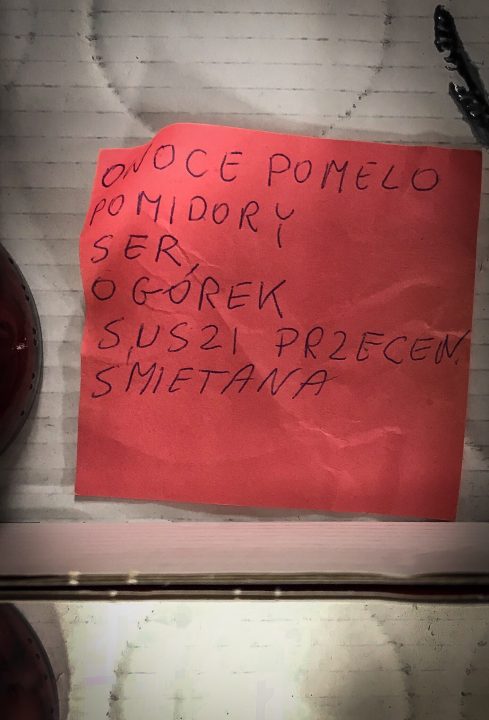 OWOCE POMELO
POMIDORY
SER,
OGÓREK
SUSZI PRZECEN.
SMIETANA